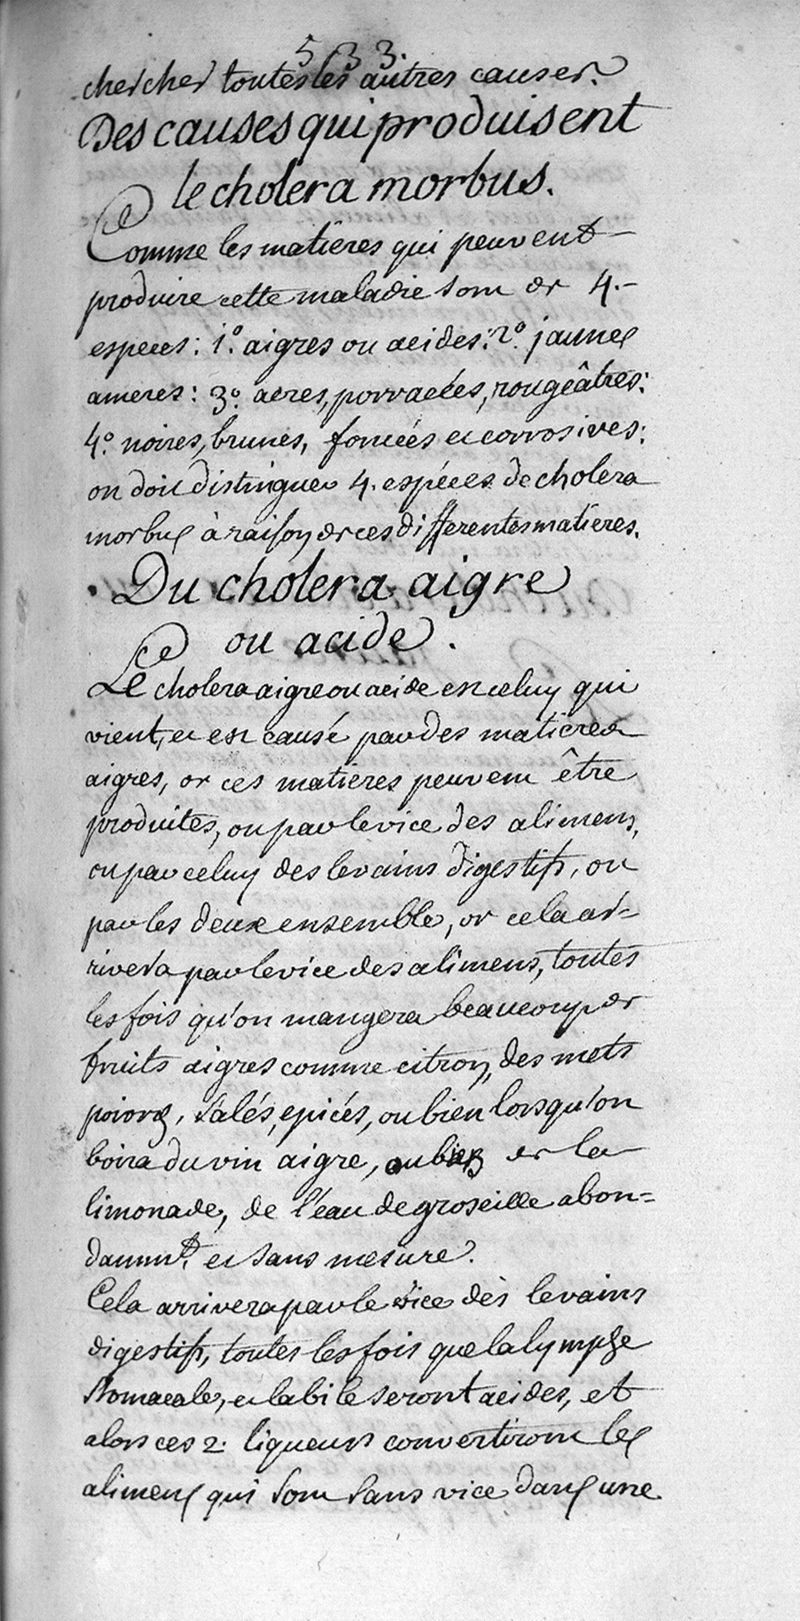 533.
chercher toutes les autres causes.
Des causes qui produisent
le cholera morbus.
Comme les matières qui peuvent
produire cette maladie sont de 4.
especes: 1.° aigres ou acides: 2.° jaunes
ameres: 3.° acres, porracées, rougeâtres:
4.° noires, brunes, foncées et corrosives:
on doit distinguer 4. espéces de cholera
morbus à raison de ces differentes matieres.
Du cholera aigre
ou acide.
Le cholera aigre ou acide est celuy qui
vient, et est causé par des matieres
aigres, or ces matières peuvent être
produites, ou par le vice des alimens,
ou par celuy des levains digestifs, ou
par les deux ensemble, or cela ar=
rivera par le vice des alimens, toutes
les fois qu'on mangera beaucoup de
fruits aigres comme citron, des mets
poivrés, salés, epicés, ou bien lorsqu'on
boira du vin aigre, ou bien de la
limonade, de l'eau de groseille abon=
damm.t et sans mesure.
Cela arrivera par le vice dès levains
digestifs, toutes les fois que la lymphe
stomacale, et la bile seront acides, et
alors ces 2. liqueurs convertiront les
alimens qui sont sans vice dans une